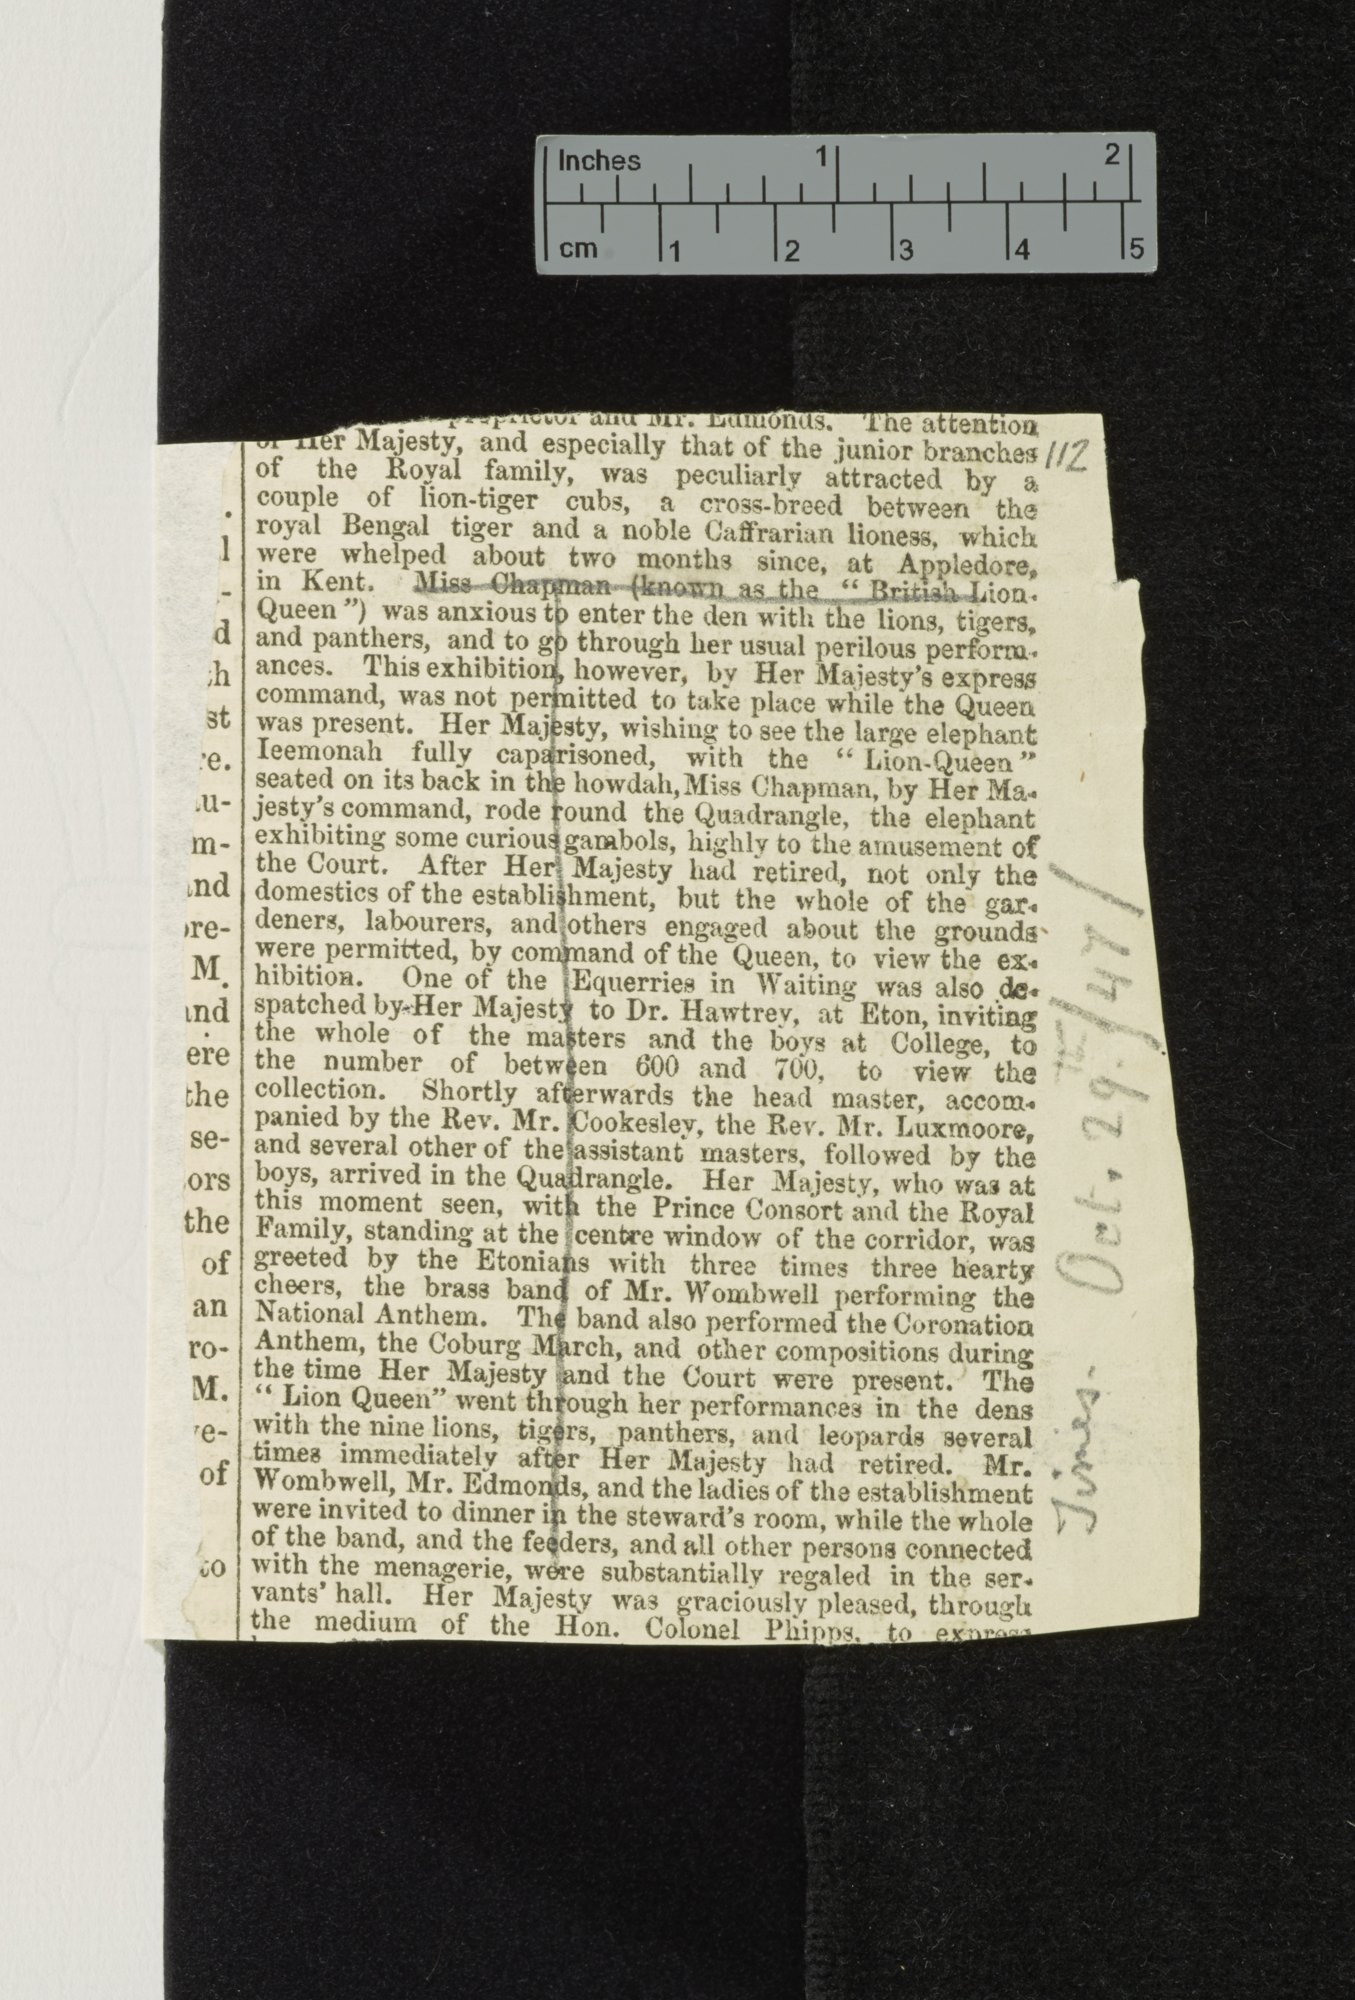 Inches 1 2
cm 1 2 3 4 5
proprietor and Mr. Edmonds. The attention
of Her Majesty, and especially that of the junior branches
of the Royal family, was peculiarly attracted by a
couple of lion-tiger cubs, a cross-breed between the
royal Bengal tiger and a noble Caffrarian lioness, which
were whelped about two months since, at Appledore,
in Kent. Miss Chapman (known as the “British Lion-
Queen”) was anxious to enter the den with the lions, tigers,
and panthers, and to go through her usual perilous perform-
ances. This exhibition, however, by Her Majesty's express
command, was not permitted to take place while the Queen
was present. Her Majesty, wishing to see the large elephant
Ieemonah fully caparisoned, with the “Lion-Queen”
seated on its back in the howdah, Miss Chapman, by Her Ma-
jesty's command, rode round the Quadrangle, the elephant
exhibiting some curious gambols, highly to the amusement of
the Court. After Her Majesty had retired, not only the
domestics of the establishment, but the whole of the gar-
deners, labourers, and others engaged about the grounds
were permitted, by command of the Queen, to view the ex-
hibition. One of the Equerries in Waiting was also de-
spatched by Her Majesty to Dr. Hawtrey, at Eton, inviting
the whole of the masters and the boys at College, to
the number of between 600 and 700, to view the
collection. Shortly afterwards the head master, accom-
panied by the Rev. Mr. Cookesley, the Rev. Mr. Luxmoore,
and several other of the assistant masters, followed by the
boys, arrived in the Quadrangle. Her Majesty, who was at
this moment seen, with the Prince Consort and the Royal
Family, standing at the centre window of the corridor, was
greeted by the Etonians with three times three hearty
cheers, the brass band of Mr. Wombwell performing the
National Anthem. The band also performed the Coronation
Anthem, the Coburg March, and other compositions during
the time Her Majesty and the Court were present. The
“Lion Queen” went through her performances in the dens
with the nine lions, tigers, panthers, and leopards several
times immediately after Her Majesty had retired. Mr.
Wombwell, Mr. Edmonds, and the ladies of the establishment
were invited to dinner in the steward's room, while the whole
of the band, and the feeders, and all other persons connected
with the menagerie, were substantially regaled in the ser-
vants' hall. Her Majesty was graciously pleased, through
the medium of the Hon. Colonel Phipps, to express
112
Times. Oct. 29th/47/
.
l
-
d
h
st
e.
u-
m-
nd
re-
M.
and
ere
the
se-
ors
the
of
an
ro-
M.
e-
of
to